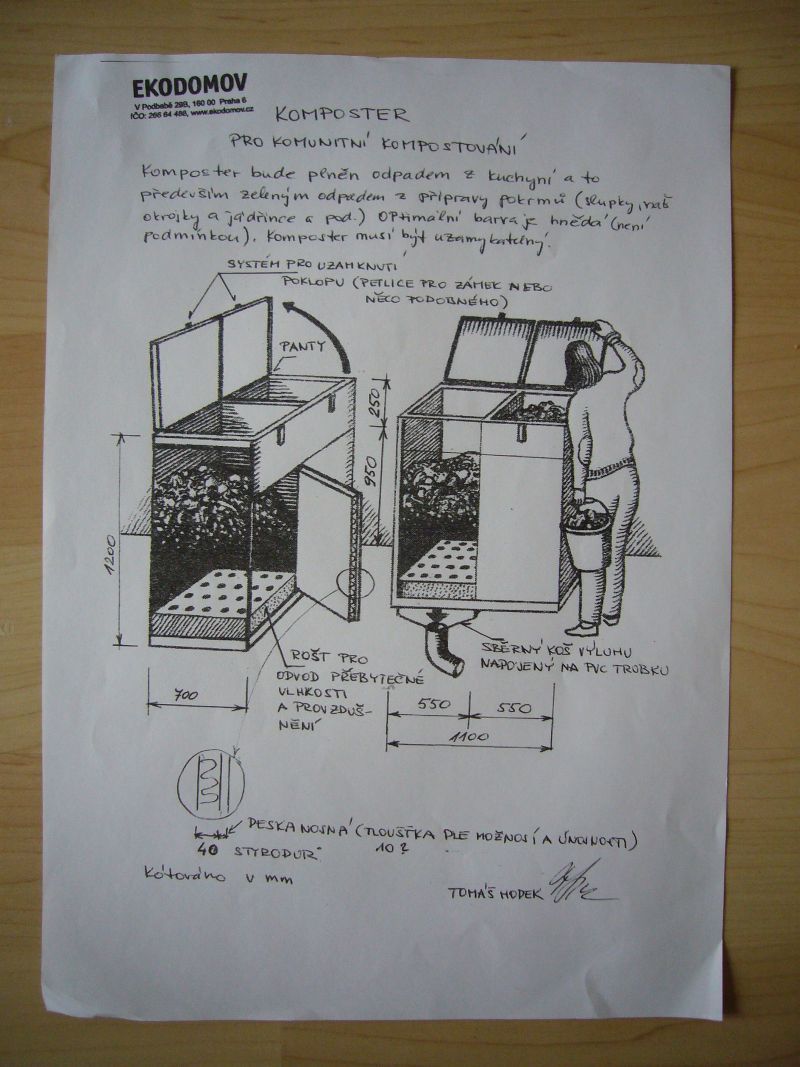 EKODOMOV
V Podbabě 29B, 160 00 Praha 6
IČO: 266 64 488, www.ekodomov.cz
KOMPOSTER
PRO KOMUNITNÍ KOMPOSTOVÁNÍ
Komposter bude plněn odpadem z kuchyní a to
především zeleným odpadem z přípravy pokrmů (slupky,
okrojky a jádřince a pod.) Optimální barva je hnědá (není
podmínkou). Komposter musí být uzamykatelný.
SYSTÉM PRO UZAMKNUTÍ
POKLOPU (PETLICE PRO ZÁMEK NEBO
NĚCO PODOBNÉHO)
PANTY
250
950
1200
ROŠT PRO
ODVOD PŘEBYTEČNÉ
VLHKOSTI
A PROVZDUŠ-
NĚNÍ
SBĚRNÝ KOŠ VÝLUHU
NAPOJENÝ NA PVC TRUBKU
700
550 550
1100
DESKA NOSNÁ (TLOUŠŤKA DLE MOŽNOSÍ A ÚNOSNOSTI)
40 STYRODUR 10?
Kótováno v mm
TOMÁŠ HODEK